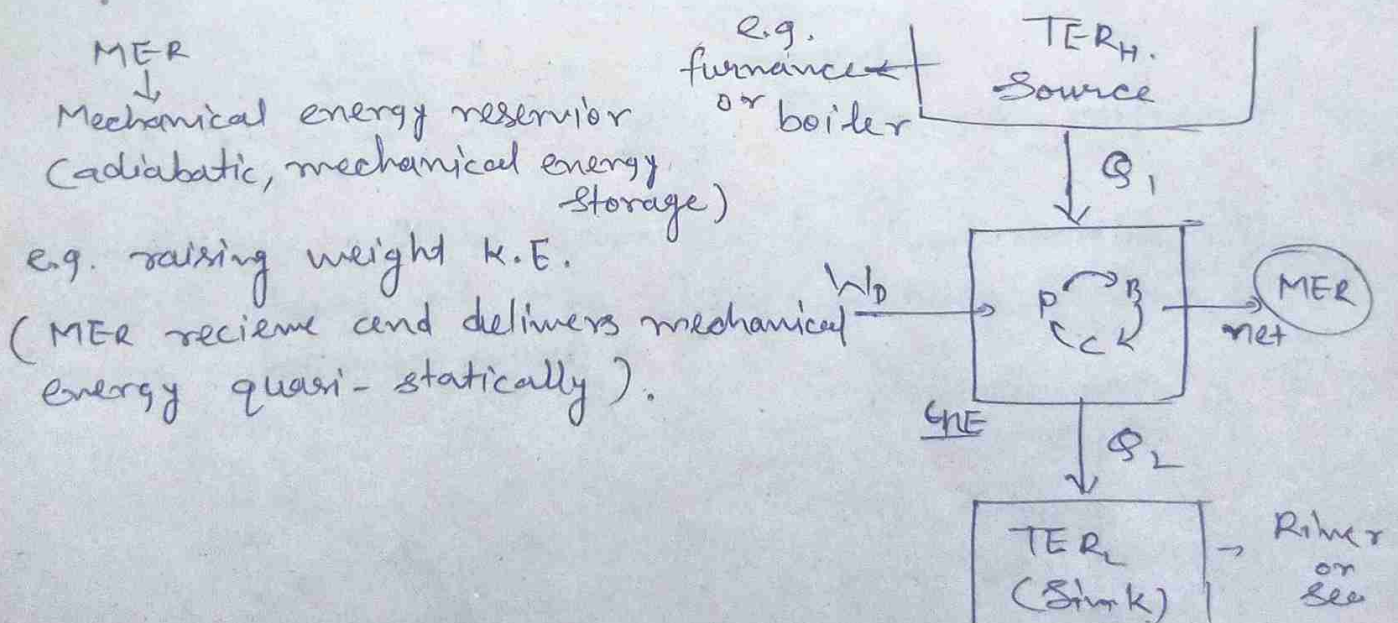 MER
Mechanical energy reservior
(adiabatic, mechanical energy
storage)
e.g. raising weight K.E.
(MER recieve and delivers mechanical
energy quasi-statically).
e.g.
furnance
or boiler
TER_H.
Source
Q_1
W_P
P B
C
net
MER
CHE
Q_2
TER_L
(Sink)
River
or
sea